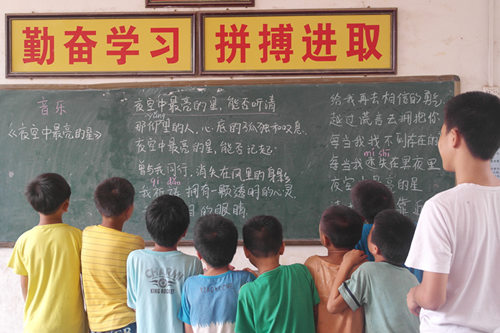 勤奋学习
拼搏进取
音乐
《夜空中最亮的星》
夜空中最亮的星，能否听清
yǎng
那仰望的人，心底的孤独和叹息
夜空中最亮的星，能否记起
曾与我同行，消失在风里的身影
qí dǎo
我祈祷拥有一颗透明的心灵
的眼睛
给我再去相信的勇气
越过谎言去拥抱你
每当我找不到存在的
mí shī
每当我迷失在黑夜里
夜空中最亮的星
靠近
CHARAM
KING